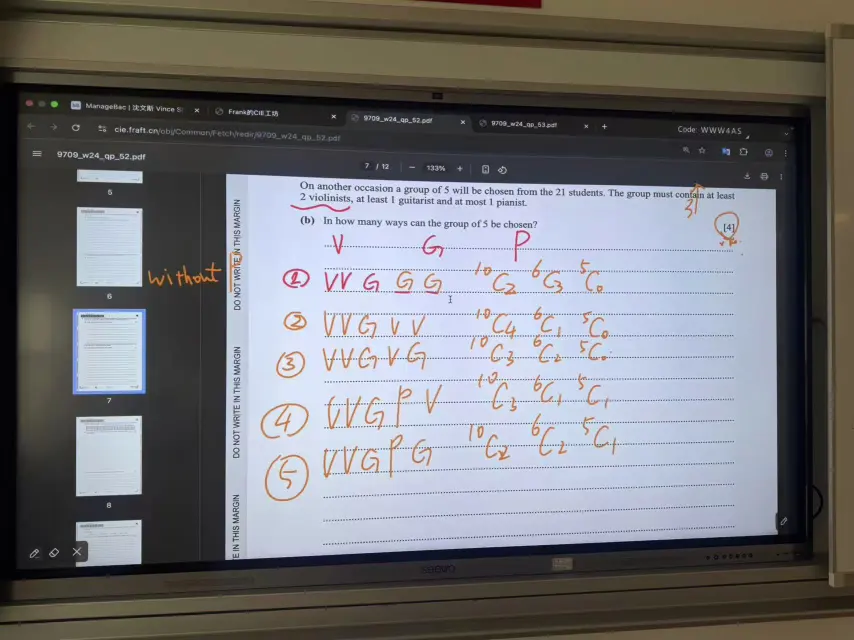 ManageBac | 沈文斯 Vince S
Frank的CIE工坊
9709_w24_qp_52.pdf
9709_w24_qp_53.pdf
Code: WWW4AS
cie.fraft.cn/obj/Common/Fetch/redir/9709_w24_qp_52.pdf
9709_w24_qp_52.pdf
7 / 12
133%
5
6
7
8
DO NOT WRITE IN THIS MARGIN
DO NOT WRITE IN THIS MARGIN
E IN THIS MARGIN
On another occasion a group of 5 will be chosen from the 21 students. The group must contain at least
2 violinists, at least 1 guitarist and at most 1 pianist.
(b) In how many ways can the group of 5 be chosen?
[4]
V G P
without P
① VV G G G 10C2 6C3 5C0
② VVG V V 10C4 6C1 5C0
③ VVG V G 10C3 6C2 5C0
④ VVG P V 10C3 6C1 5C1
⑤ VVG P G 10C2 6C2 5C1